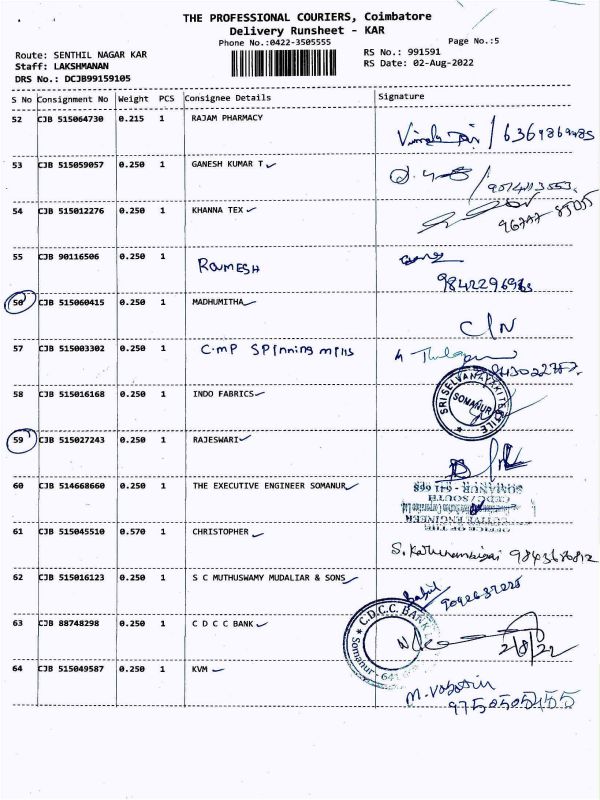 THE PROFESSIONAL COURIERS, Coimbatore
Delivery Runsheet - KAR
Phone No.:0422-3505555
Page No.:5
Route: SENTHIL NAGAR KAR
RS No.: 991591
Staff: LAKSHMANAN
RS Date: 02-Aug-2022
DRS No.: DCJB99159105
S No Consignment No Weight PCS Consignee Details Signature
52 CJB 515064730 0.215 1 RAJAM PHARMACY
53 CJB 515059057 0.250 1 GANESH KUMAR T
54 CJB 515012276 0.250 1 KHANNA TEX
55 CJB 90116506 0.250 1 ROUMESH
56 CJB 515060415 0.250 1 MADHUMITHA
C/N
57 CJB 515003302 0.250 1 C.MP SPinning mills
58 CJB 515016168 0.250 1 INDO FABRICS
SRI SELVANAYAKI TEXTILE
SOMANUR
59 CJB 515027243 0.250 1 RAJESWARI
60 CJB 514668660 0.250 1 THE EXECUTIVE ENGINEER SOMANUR
OFFICE OF THE
EXECUTIVE ENGINEER
CEDC/SOUTH
SOMANUR - 641 668
61 CJB 515045510 0.570 1 CHRISTOPHER
62 CJB 515016123 0.250 1 S C MUTHUSWAMY MUDALIAR & SONS
63 CJB 88748298 0.250 1 C D C C BANK
C.D.C.C. BANK
Somanur
2/8/22
64 CJB 515049587 0.250 1 KVM